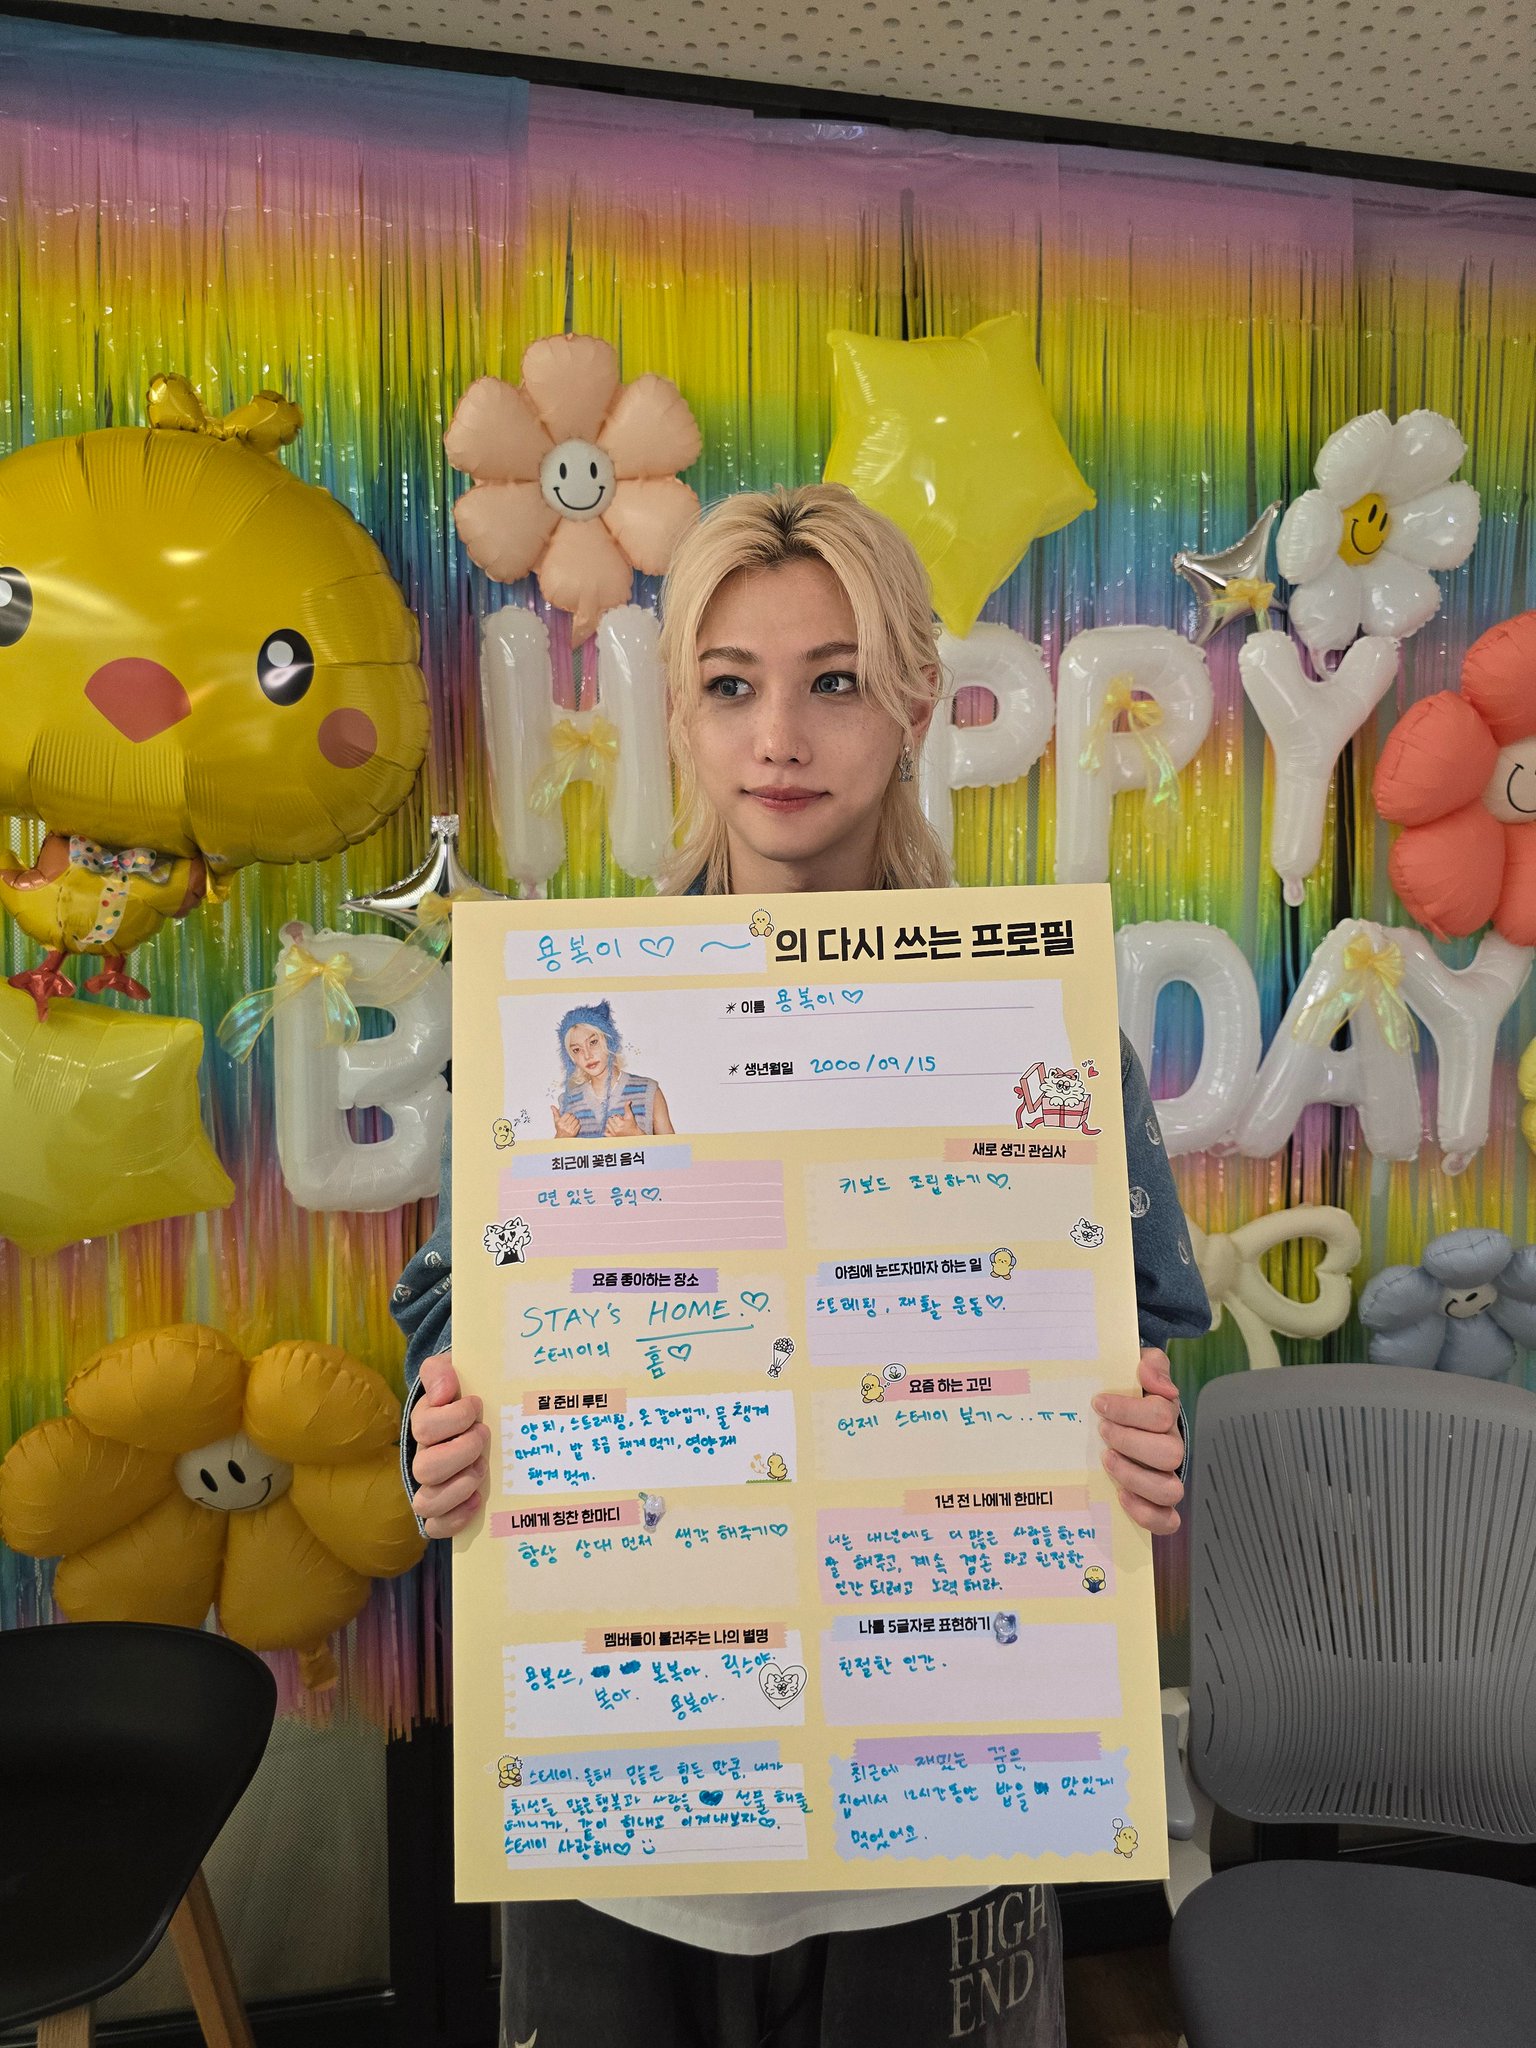 HAPPY
B DAY
용복이♡~의 다시 쓰는 프로필
* 이름 용복이♡
* 생년월일 2000/09/15
최근에 꽂힌 음식
면 있는 음식♡.
새로 생긴 관심사
키보드 조립하기♡.
요즘 좋아하는 장소
STAY's HOME.♡.
스테이의 홈♡
아침에 눈뜨자마자 하는 일
스트레칭, 재활 운동♡.
잘 준비 루틴
양치, 스트레칭, 옷 갈아입기, 물 챙겨
마시기, 밥 조금 챙겨 먹기, 영양제
챙겨 먹기.
요즘 하는 고민
언제 스테이 보기~...ㅠㅠ.
나에게 칭찬 한마디
항상 상대 먼저 생각 해주기♡
1년 전 나에게 한마디
너는 내년에도 더 많은 사람들한테
잘 해주고, 계속 겸손 하고 친절한
인간 되려고 노력해라.
멤버들이 불러주는 나의 별명
용복쓰, 복복아. 릭스야.
복아. 용복아.
나를 5글자로 표현하기
친절한 인간.
스테이. 올해 많은 힘든 만큼, 내가
최선을 많은 행복과 사랑을 선물 해줄
테니까, 같이 힘내고 이겨내보자♡.
스테이 사랑해♡ :)
최근에 재밌는 꿈은,
집에서 12시간동안 밥을 맛있게
먹었어요.
HIGH
END